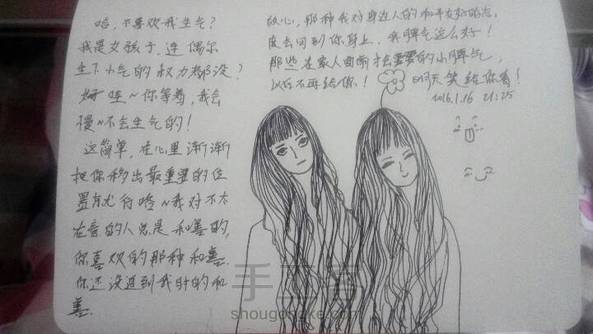 哈，不喜欢我生气？
我是女孩子，连偶尔
生下小气的权力都没？
好哇～你等着，我会
慢～不会生气的！
这简单，在心里渐渐
把你移出最重要的位
置就行咯～我对不太
在意的人总是和善的，
你喜欢的那种和善。
你还没追到我时的和
善。
放心，那种我对身边人的和平友好的态
度会回到你身上，我脾气这么好！
那些在家人面前才会的小脾气，
以后不再给你！明天笑给你看！
2016.1.16 21:25
手工客
shougongke.com